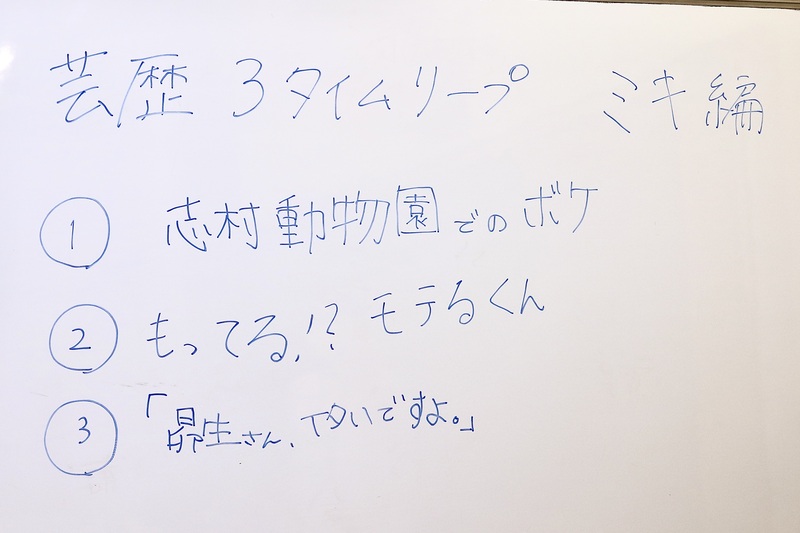 芸歴 3タイムリープ ミキ編
① 志村動物園でのボケ
② もってる!? モテるくん
③ 「昴生さん、下女いですよ。」